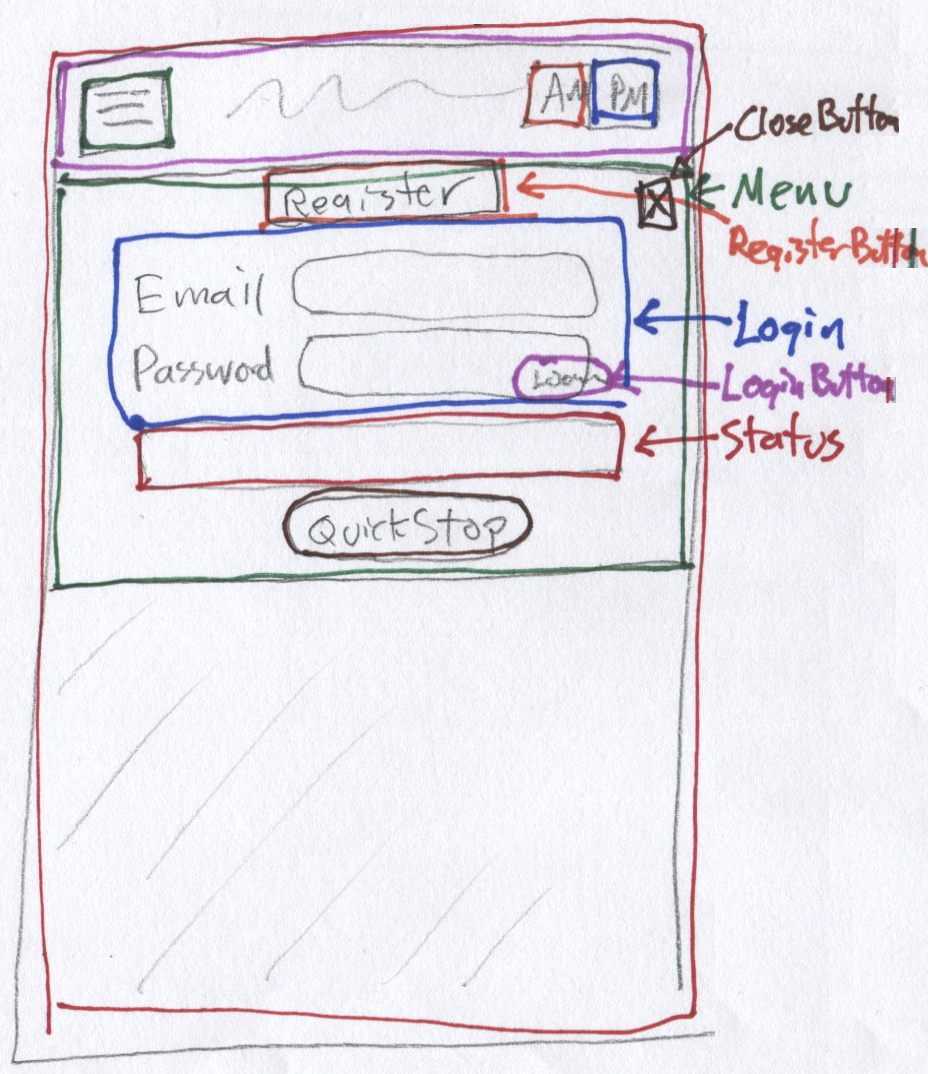 AM PM
CloseButton
Register
X
Menu
RegisterButton
Email
Login
Password
Login
LoginButton
Status
QuickStop